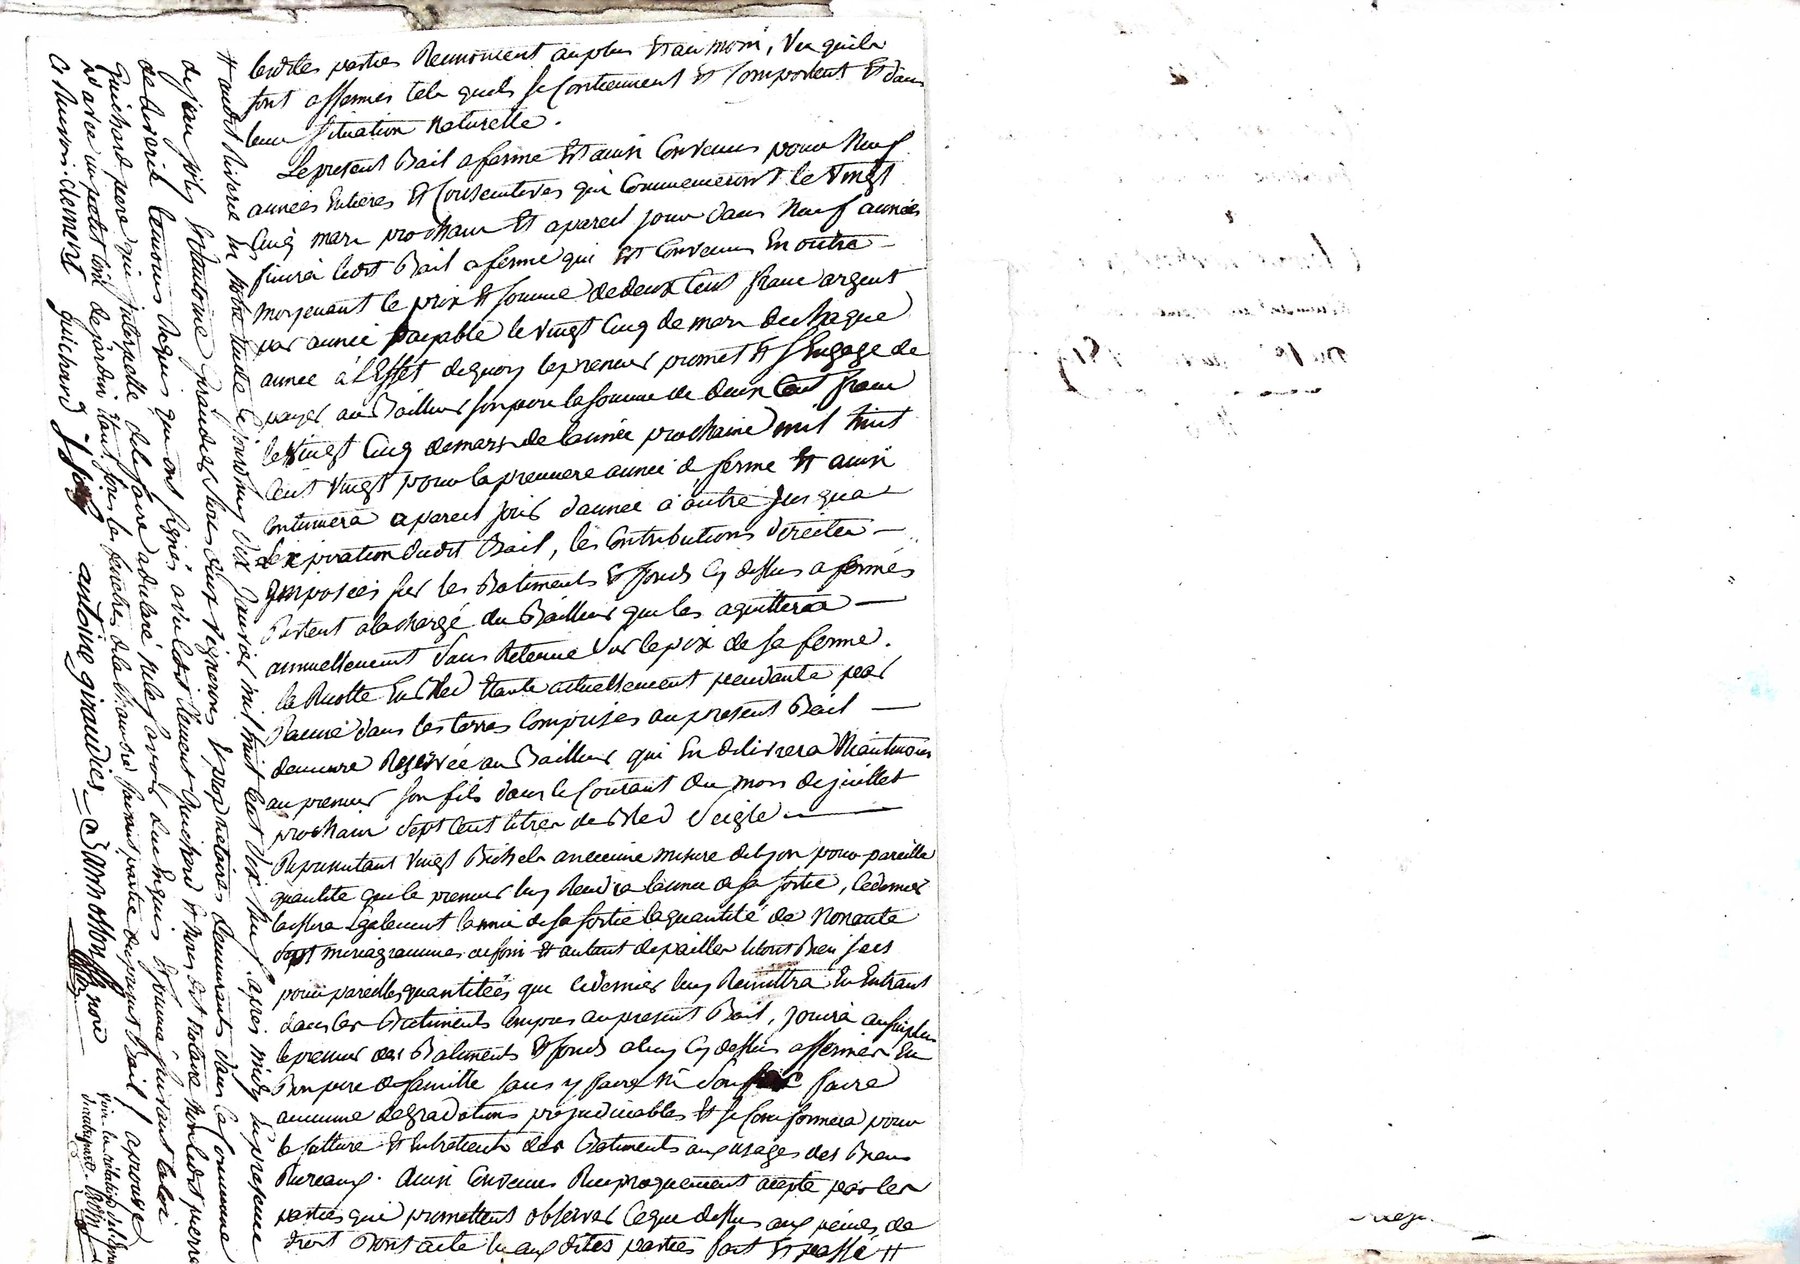 lesdites parties Renoncent au plus Et au moin, Vu quils
sont affermes tels quils se Contiennent Et Comportent Et dans
leur situation Naturelle.
Le present Bail a ferme Est ainsi Convenu pour Neuf
années Entieres Et Consecutives qui Commenceront le Vingt
Cinq mars prochain Et a pareil jour dans Neuf années
finira ledit Bail a ferme qui Est Convenu En outre
moyenant le prix Et somme de deux Cent franc argent
par année payable le vingt Cinq de mars de chaque
année à l'Effet de quoy le preneur promet Et s'Engage de
payer au Bailleur son pere la somme de deux Cent franc
le Vingt Cinq de mars de lannée prochaine mil huit
Cent Vingt pour la premiere année de ferme Et ainsi
Continuera a pareil jour dannée à autre jusqua
Lexpiration dudit Bail, les Contributions directes
Imposées sur les Batiments Et fonds Cy dessus afermés
Restent a la charge du Bailleur qui les aquittera
annuellement Sans Retenue Sur le prix de sa ferme.
la Recolte En Bled Etante actuellement pendante par
Racine dans les terres Comprises au present Bail
demeure Reservée au Bailleur qui En delivrera Néantmoins
au preneur son fils dans le Courant du mois de juillet
prochain Sept Cent litres de Bled Seigle
Representant Vingt Bichets ancienne mesure de lyon pour pareille
quantité que le preneur luy Rendra lannée de sa sortie, le dernier
laissera Egalement lannée de sa sortie la quantité de Nonante
Sept miriagrammes de foin Et autant de pailles le tout Bien sec
pour pareilles quantitées que ce dernier luy Remettra En Entrant
dans les Batiments Compris au present Bail, jouira au surplus
le preneur des Batiments Et fonds a luy Cy dessus affermés En
Bon pere de famille sans y faire Ni Souffrir faire
aucune degradations prejudiciables Et se Conformera pour
la Culture Et Entretient des Batiments aux usages des Biens
Rureaux. Ainsi Convenu Reciproquement accepté par les
parties qui promettent observer Ce que dessus aux peines de
droit Dont acte lu aux dites parties fait Et passé #
# audit Riverie En notre Etude Cejourdhuy dix Janvier mil huit Cent dix Neuf apres midy En presence
de jean joly Et d'antoine giraudier tous deux Vignerons Et proprietaires demeurants dans la Commune
de Riverie temoins Requis qui ont signés avec ledit Clement Guichard Et nous dit notaire non ledit pierre
Guichard pere qui interpellé de le faire a declaré ne le savoir de ce Enquis Et sommé suivant la loi
avec un petit Coin de jardin Etant sous les fenetres de la chambre faisant partie du present Bail / aprouvé
Clement guichard J Joly antoine giraudier